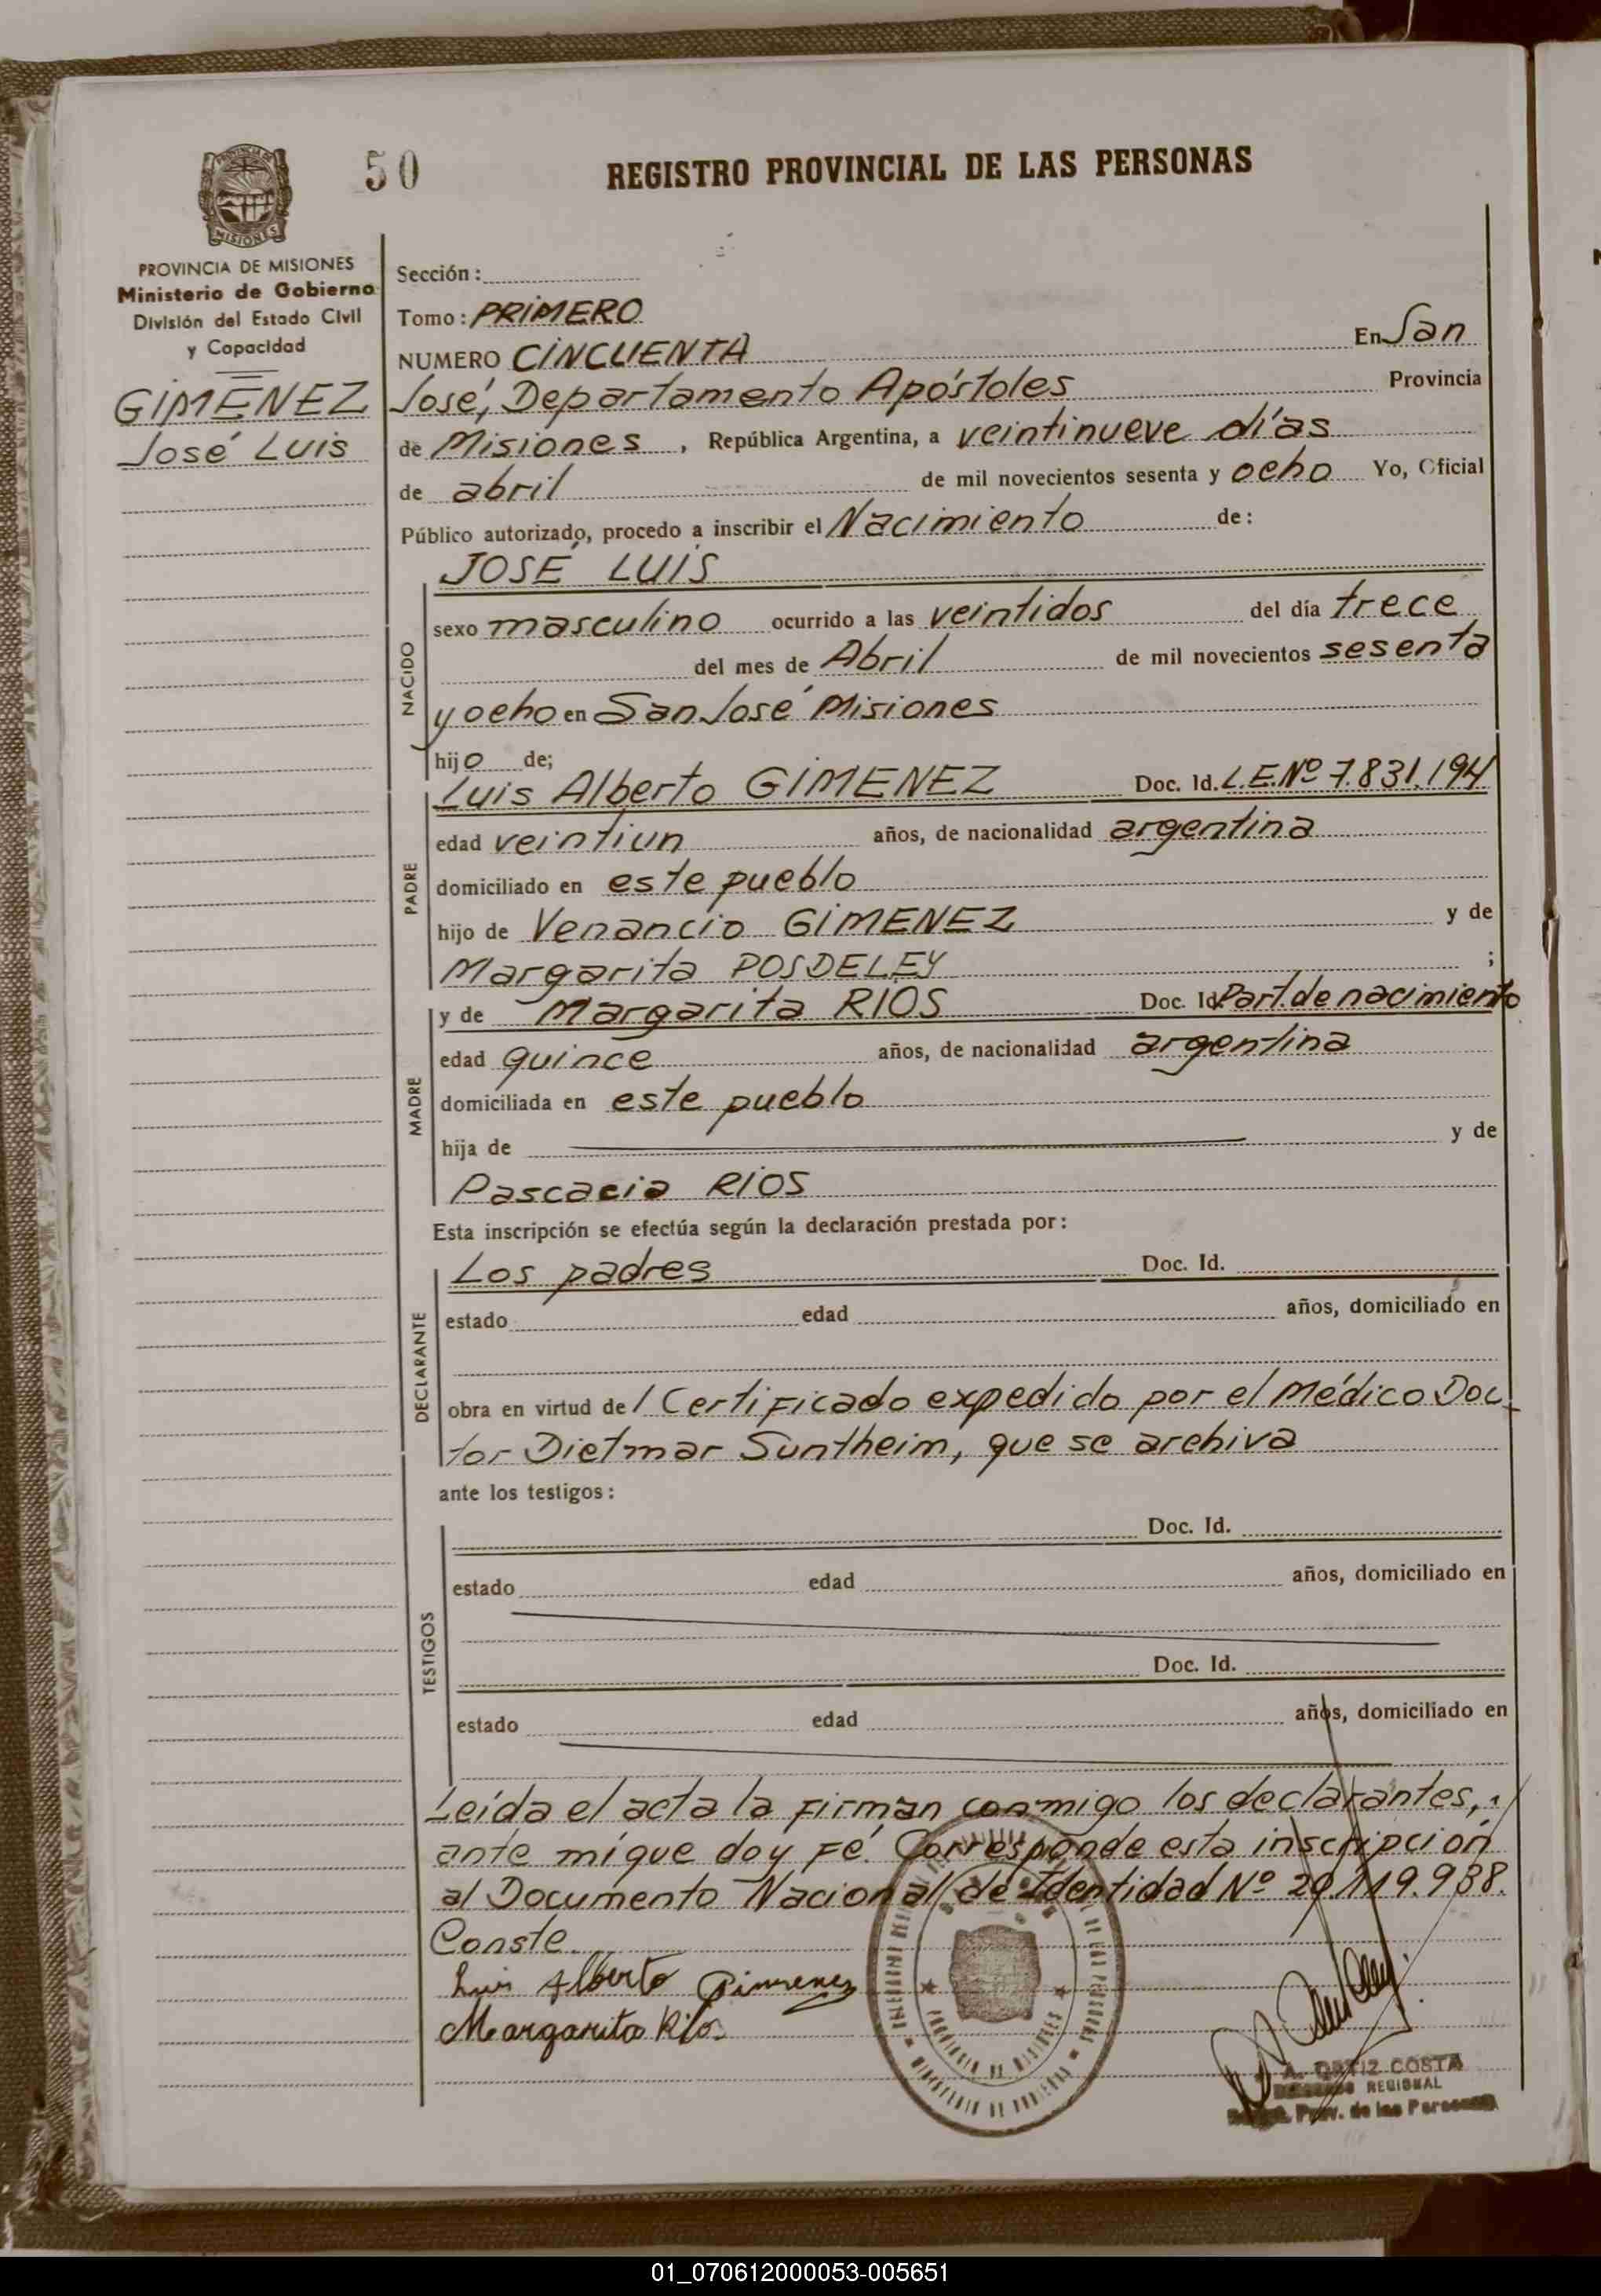 50
REGISTRO PROVINCIAL DE LAS PERSONAS
MISIONES
PROVINCIA DE MISIONES
Ministerio de Gobierno
División del Estado Civil
y Capacidad
GIMENEZ
José Luis
Sección:
Tomo: PRIMERO
NUMERO CINCUENTA En San
José, Departamento Apóstoles Provincia
de Misiones, República Argentina, a veintinueve días
de abril de mil novecientos sesenta y ocho Yo, Oficial
Público autorizado, procedo a inscribir el Nacimiento de:
NACIDO
JOSÉ LUIS
sexo masculino ocurrido a las veintidos del día trece
del mes de Abril de mil novecientos sesenta
y ocho en San José Misiones
hijo de;
PADRE
Luis Alberto GIMENEZ Doc. Id. L.E.Nº 7.831.194
edad veintiun años, de nacionalidad argentina
domiciliado en este pueblo
hijo de Venancio GIMENEZ y de
Margarita POSDELEY ;
MADRE
y de Margarita RIOS Doc. Id Part. de nacimiento
edad quince años, de nacionalidad argentina
domiciliada en este pueblo
hija de y de
Pascacia RIOS
Esta inscripción se efectúa según la declaración prestada por:
DECLARANTE
Los padres Doc. Id.
estado edad años, domiciliado en
obra en virtud de l Certificado expedido por el Médico Doc-
tor Dietmar Suntheim, que se archiva
ante los testigos:
TESTIGOS
Doc. Id.
estado edad años, domiciliado en
Doc. Id.
estado edad años, domiciliado en
Leída el acta la firman conmigo los declarantes,
ante mí que doy fé. Corresponde esta inscripción
al Documento Nacional de Identidad Nº 20.119.938.
Conste.
Luis Alberto Gimenez
Margarita Rios
PROVINCIA DE MISIONES
A. ORTIZ COSTA
REGIONAL
Prov. de las Personas
01_070612000053-005651